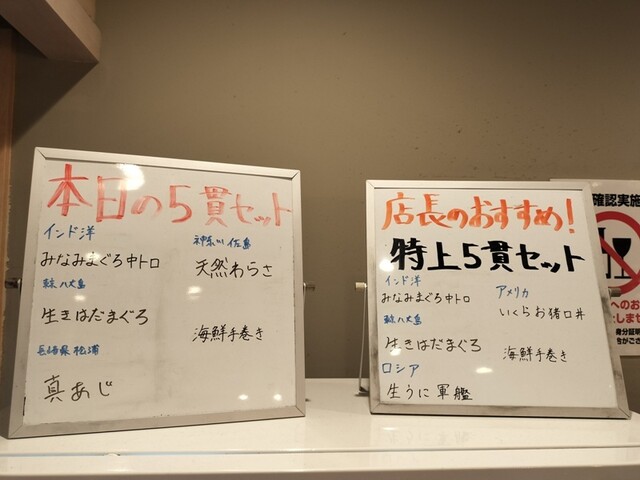 本日の5貫セット
インド洋
みなみまぐろ中トロ
東京 八丈島
生きはだまぐろ
長崎県 松浦
真あじ
神奈川 佐島
天然わらさ
海鮮手巻き
店長のおすすめ!
特上5貫セット
インド洋
みなみまぐろ中トロ
東京 八丈島
生きはだまぐろ
ロシア
生うに軍艦
アメリカ
いくらお猪口丼
海鮮手巻き
確認実施